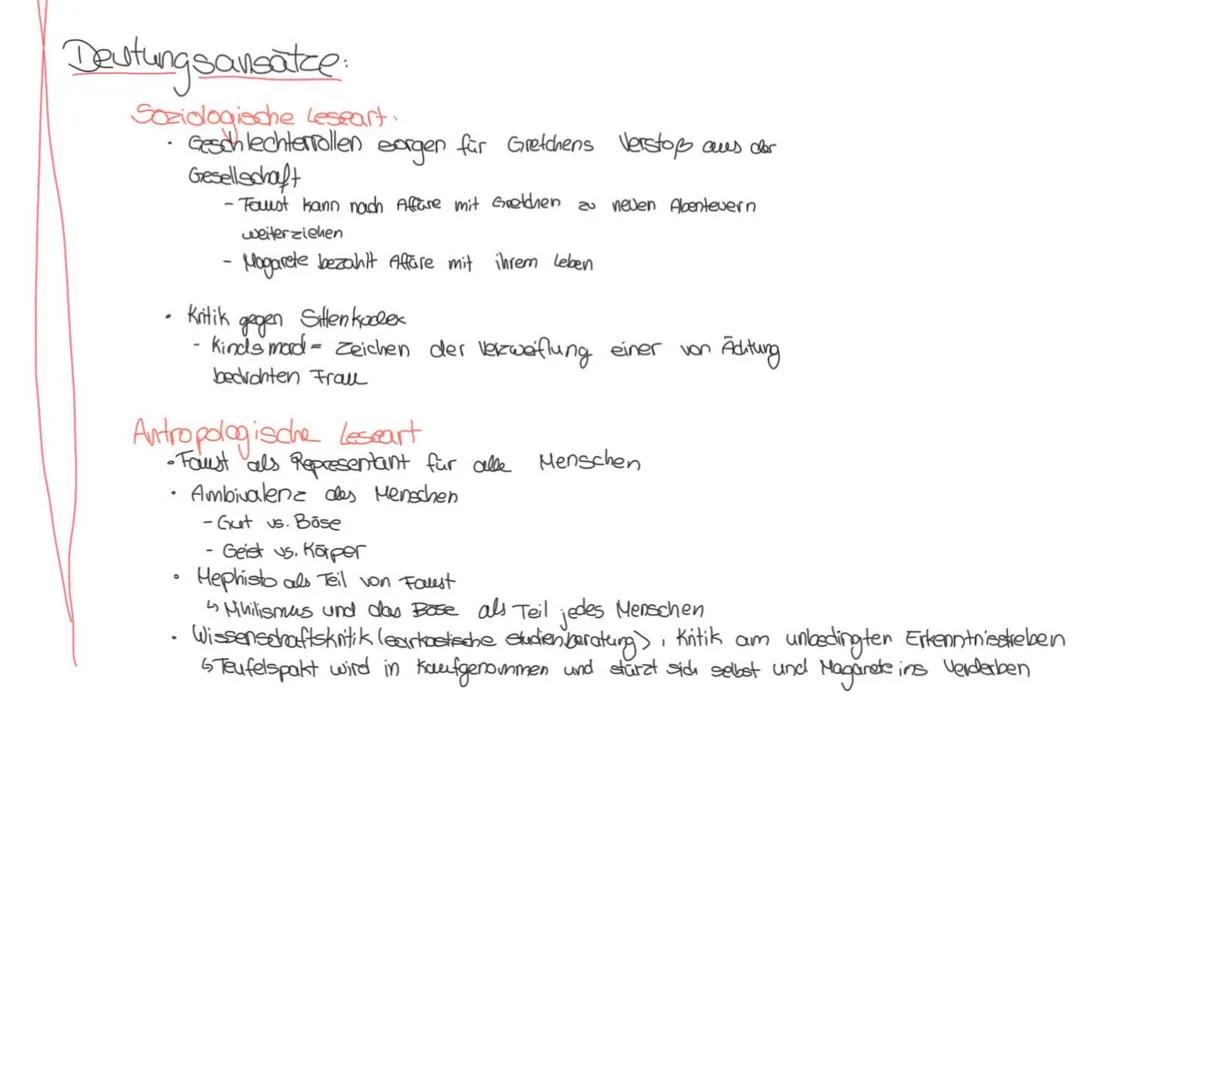 Deutungsansätze:
Soziologische Leseart:
• Geschlechterrollen sorgen für Gretchens Verstoß aus der
Gesellschaft
- Faust kann nach Affäre mit Gretchen zu neuen Abenteuern
weiterziehen
- Magarete bezahlt Affäre mit ihrem Leben
• Kritik gegen Sittenkodex
- Kindsmord = Zeichen der Verzweiflung einer von Ächtung
bedrohten Frau
Antropologische Leseart
• Faust als Representant für alle Menschen
• Ambivalenz des Menschen
- Gut vs. Böse
- Geist vs. Körper
• Mephisto als Teil von Faust
↳ Nihilismus und das Böse als Teil jedes Menschen
• Wissenschaftskritik (sarkastische Studienberatung), Kritik am unbedingten Erkenntnisstreben
↳ Teufelspakt wird in Kaufgenommen und stürzt sich selbst und Magarete ins Verderben